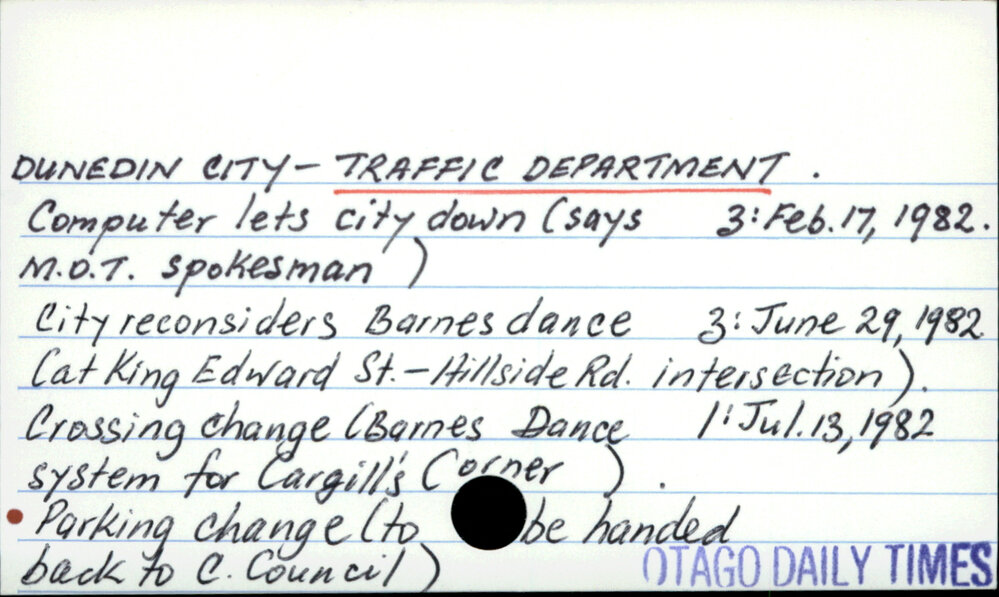 DUNEDIN CITY - TRAFFIC DEPARTMENT.
Computer lets city down (says 3: Feb. 17, 1982.
M.O.T. spokesman)
City reconsiders Barnes dance 3: June 29, 1982
(at King Edward St. - Hillside Rd. intersection).
Crossing change (Barnes Dance 1: Jul. 13, 1982
system for Cargill's Corner).
Parking change (to be handed
back to C. Council)
OTAGO DAILY TIMES